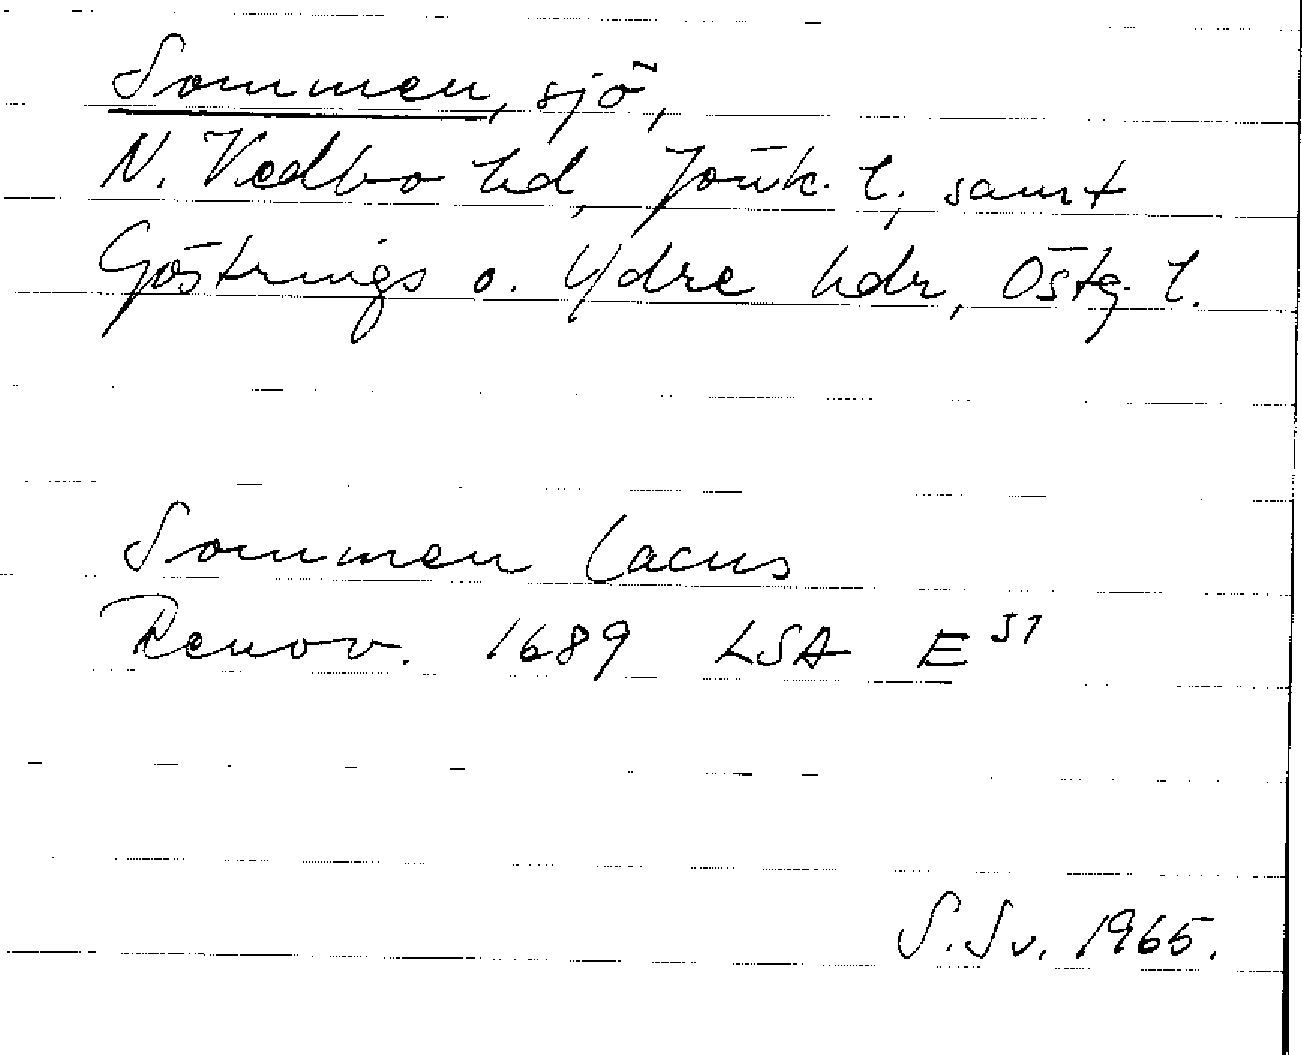 Sommen, sjö,
N. Vedbo hd, Jönk. l., samt
Göstrings o. Ydre hdr, Östg. l.
Sommen lacus
Renov. 1689 LSA E 51
S. Sv. 1965.